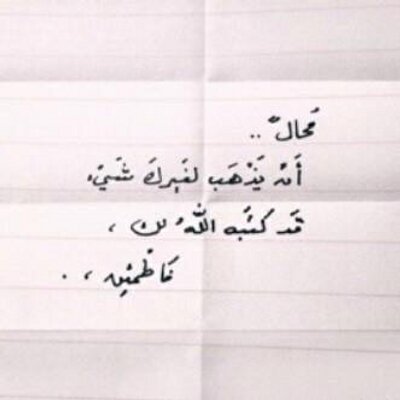 مُحالٌ ..
أَنْ يَذْهَب لغَيرِكَ شَيْء
قَد كتَبه اللهُ لك ،
فَاطْمَئِن ، .